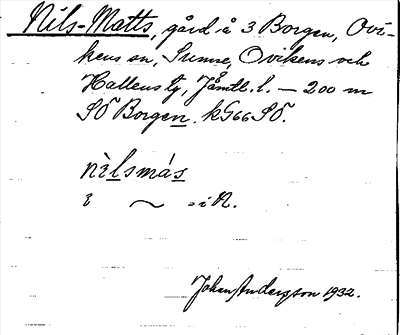 Nils-Matts, gård å 3 Borgen, Ovi-
kens sn, Sunne, Ovikens och
Hallens tg, Jämtl. l. — 200 m
SÖ Borgen. kG66SÖ.
nìlsmás
i ~ = i N.
Johan Anderzson 1932.